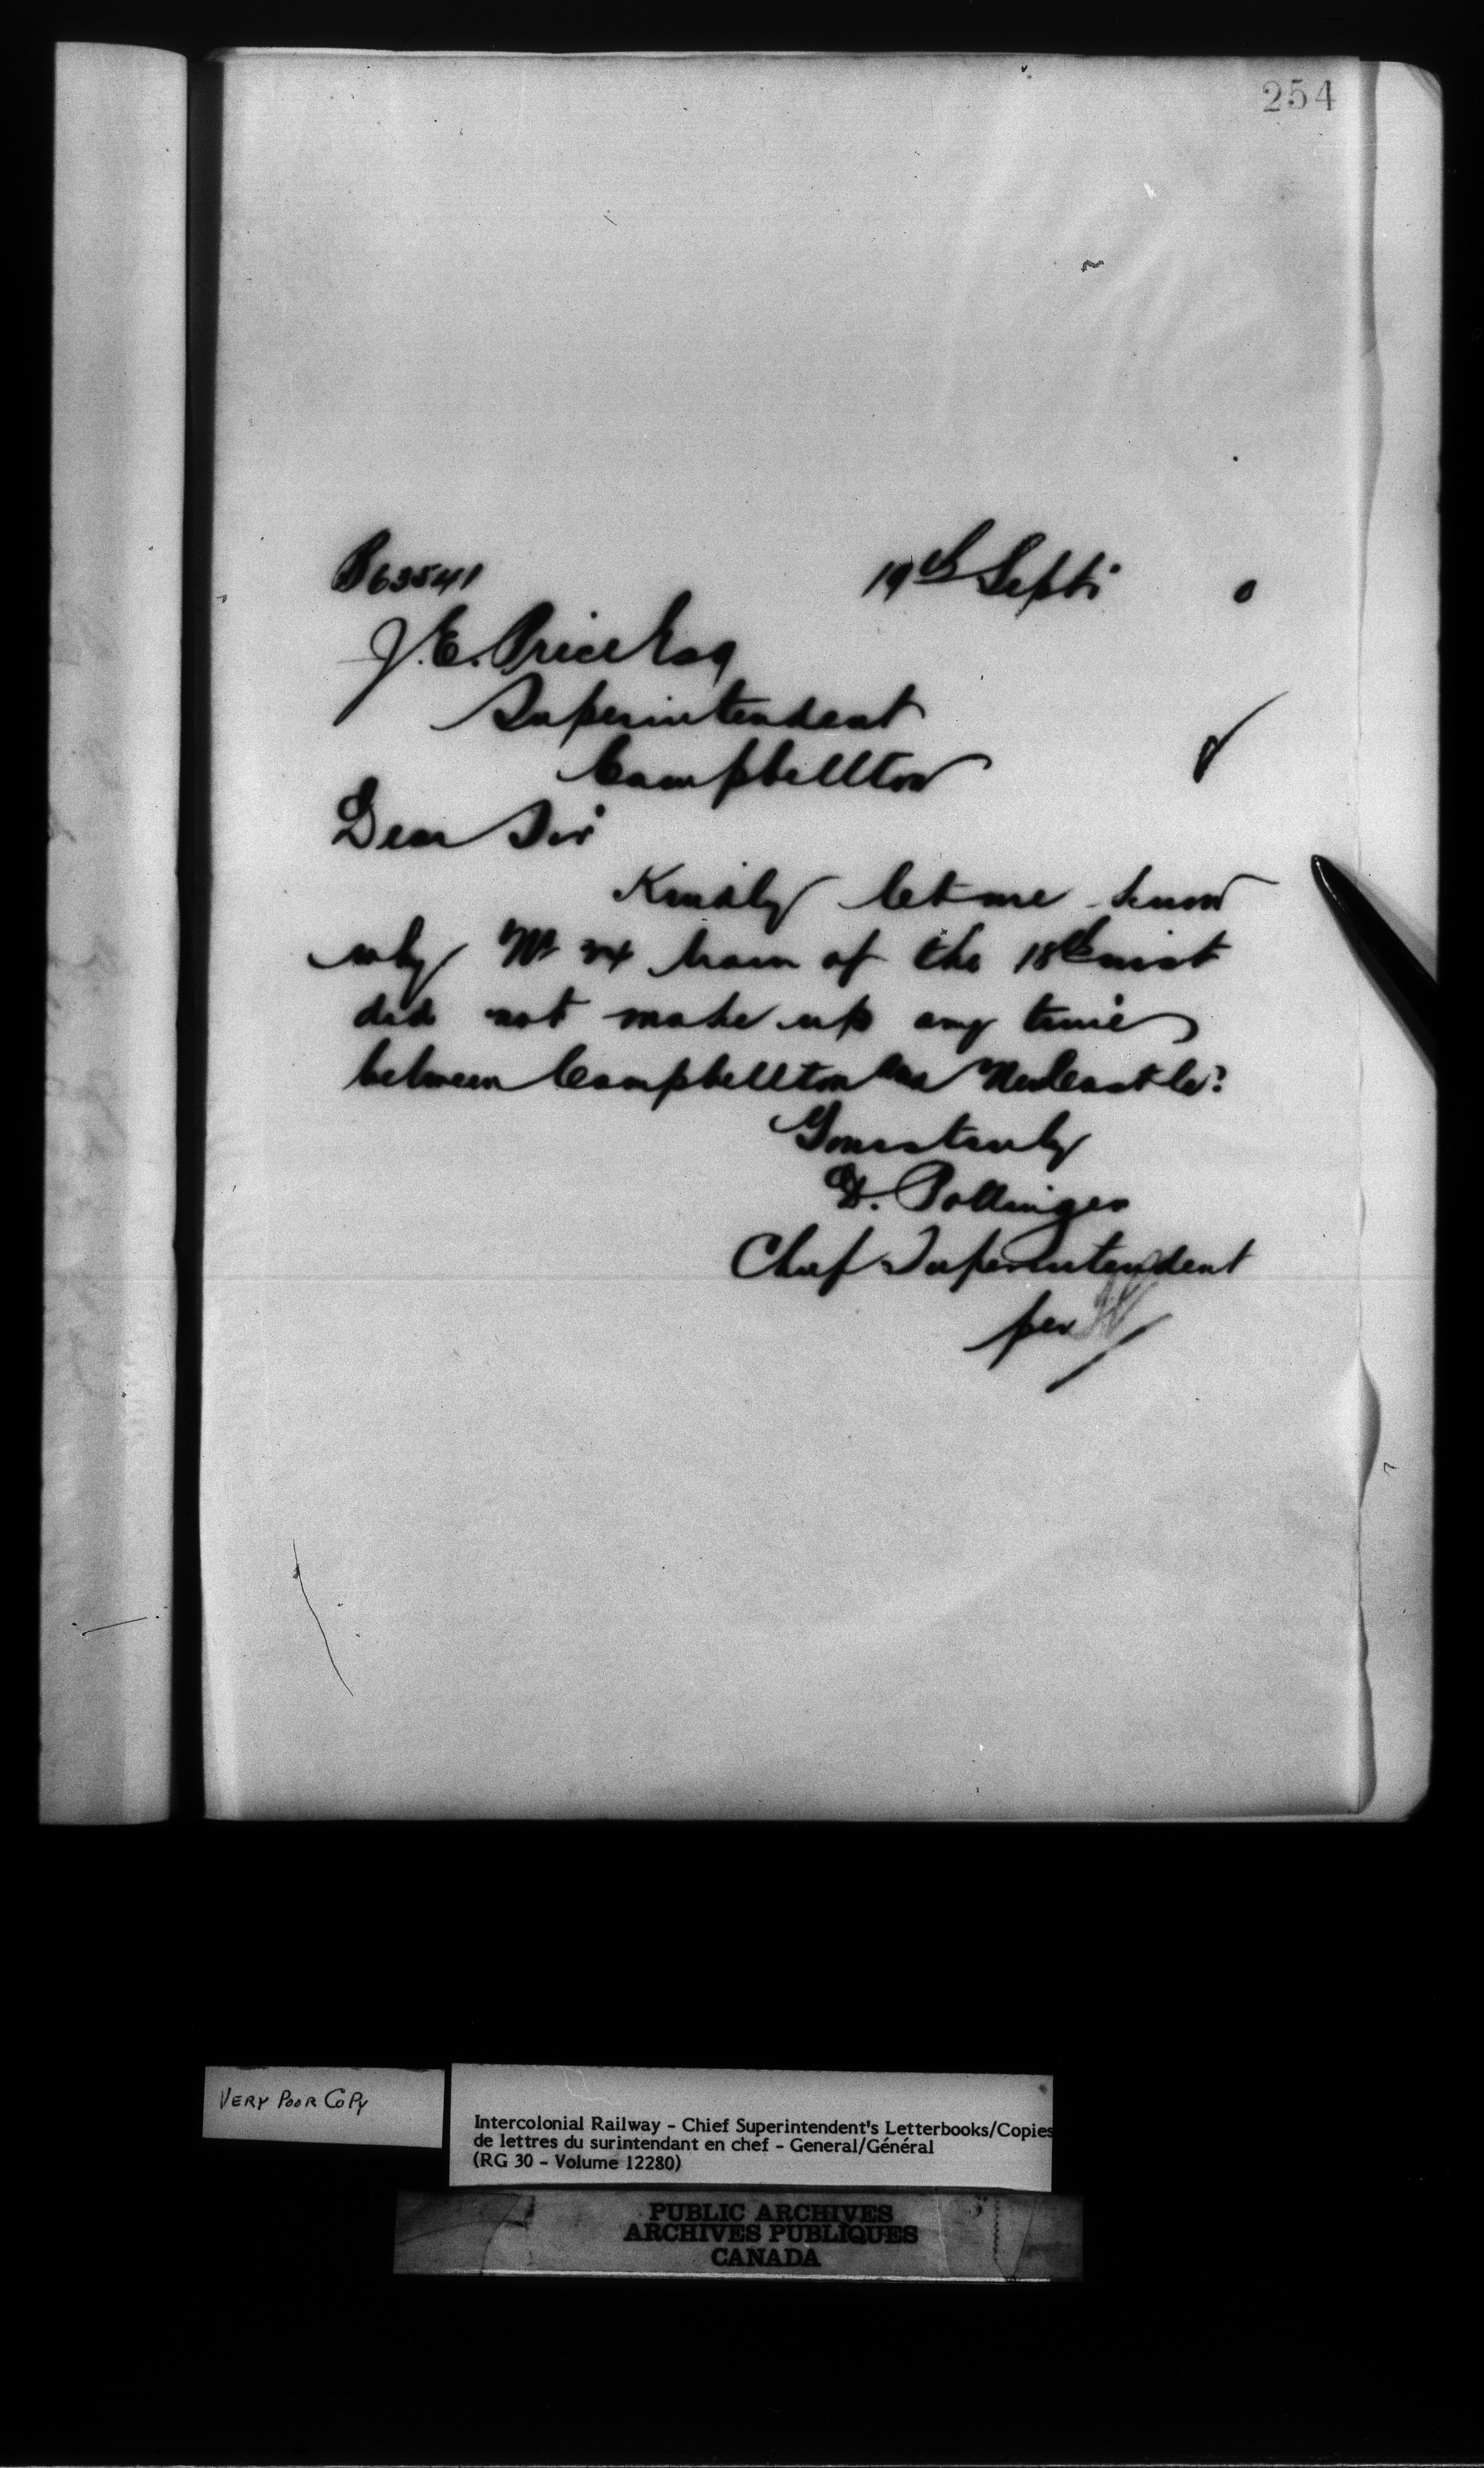 254
B63541 19th Sept. 0
J. E. Price Esq
Superintendent
Campbellton
Dear Sir
Kindly let me know
why No 34 train of the 18th inst
did not make up any time
between Campbellton and NewCastle?
Yours truly
D. Pottinger
Chief Superintendent
per
VERY POOR COPY
Intercolonial Railway - Chief Superintendent's Letterbooks/Copies
de lettres du surintendant en chef - General/Général
(RG 30 - Volume 12280)
PUBLIC ARCHIVES
ARCHIVES PUBLIQUES
CANADA